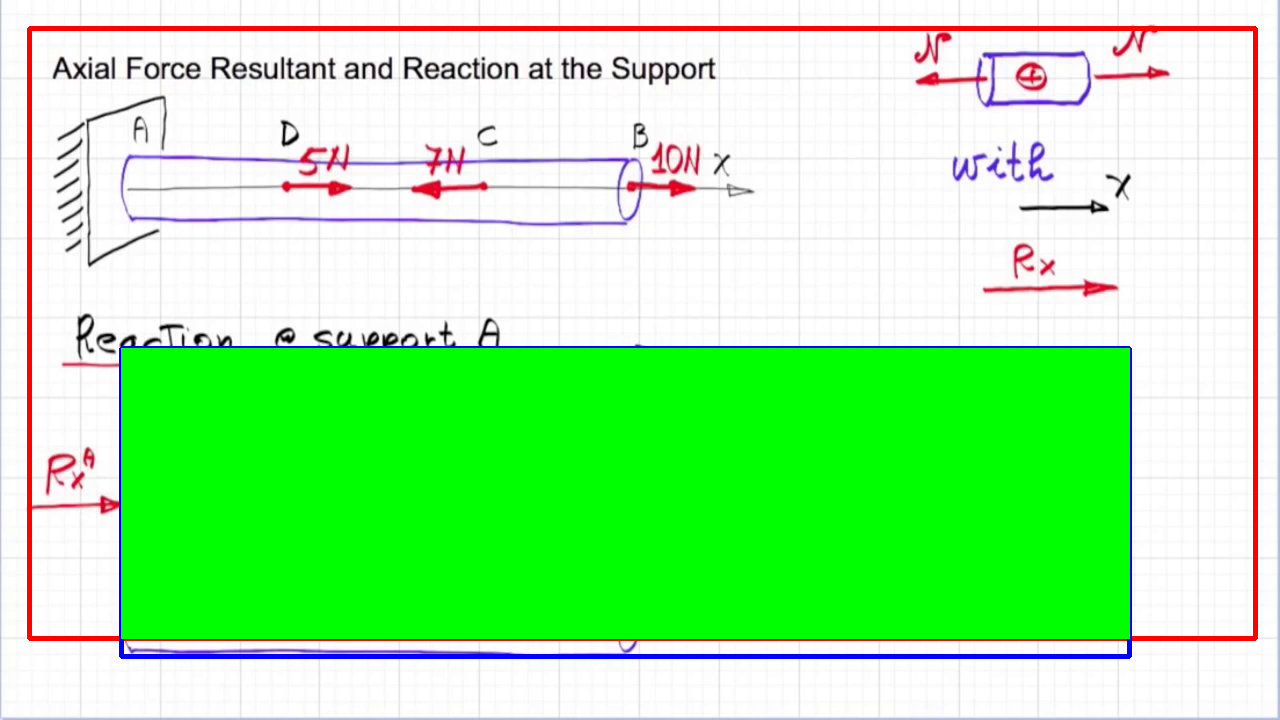 Axial Force Resultant and Reaction at the Support
N N
A D C B
5N 7N 10N X
with
X
Rx
Reaction @ support A
RxA